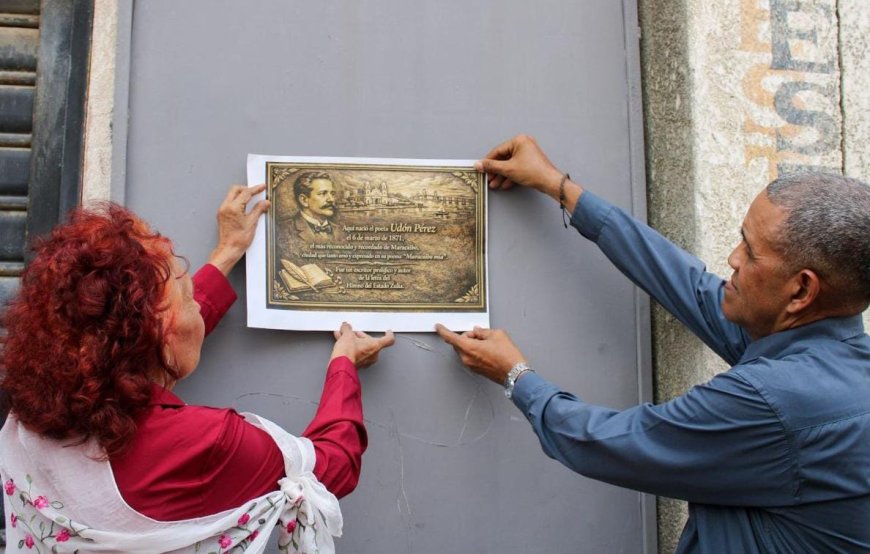 Aquí nació el poeta Udón Pérez
el 6 de marzo de 1871,
el más reconocido y
recordado de Maracaibo,
ciudad que tanto amó y expresado en su poema "Maracaibo mía"
Fue un escritor prolífico y autor
de la letra del
Himno del Estado Zulia.